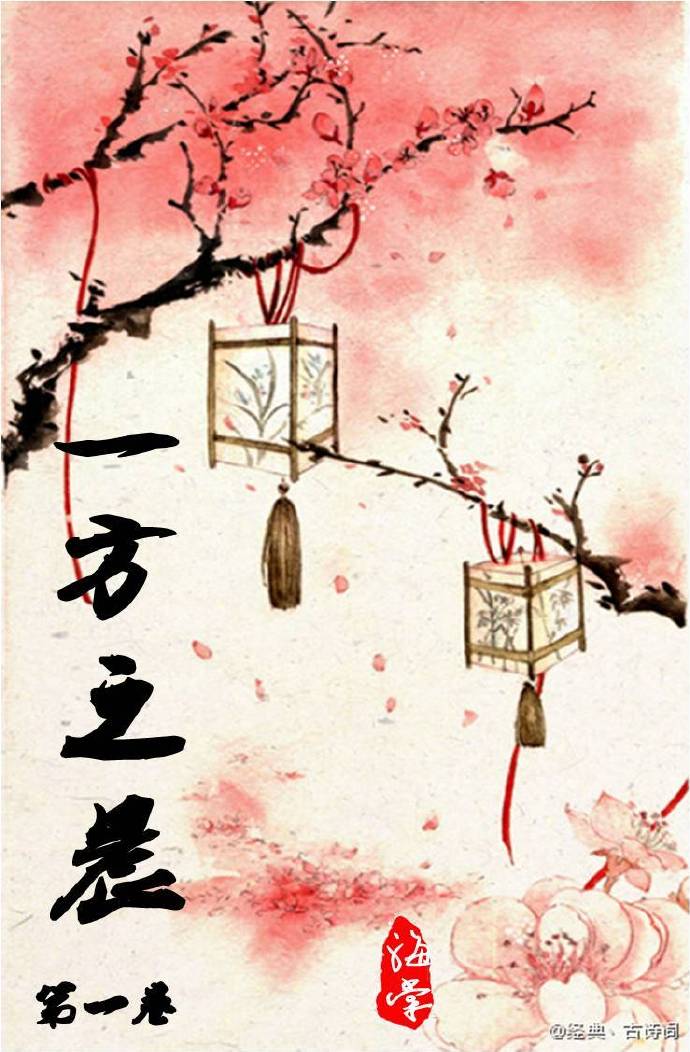 一方之
第一卷
海棠
@经典、古诗词